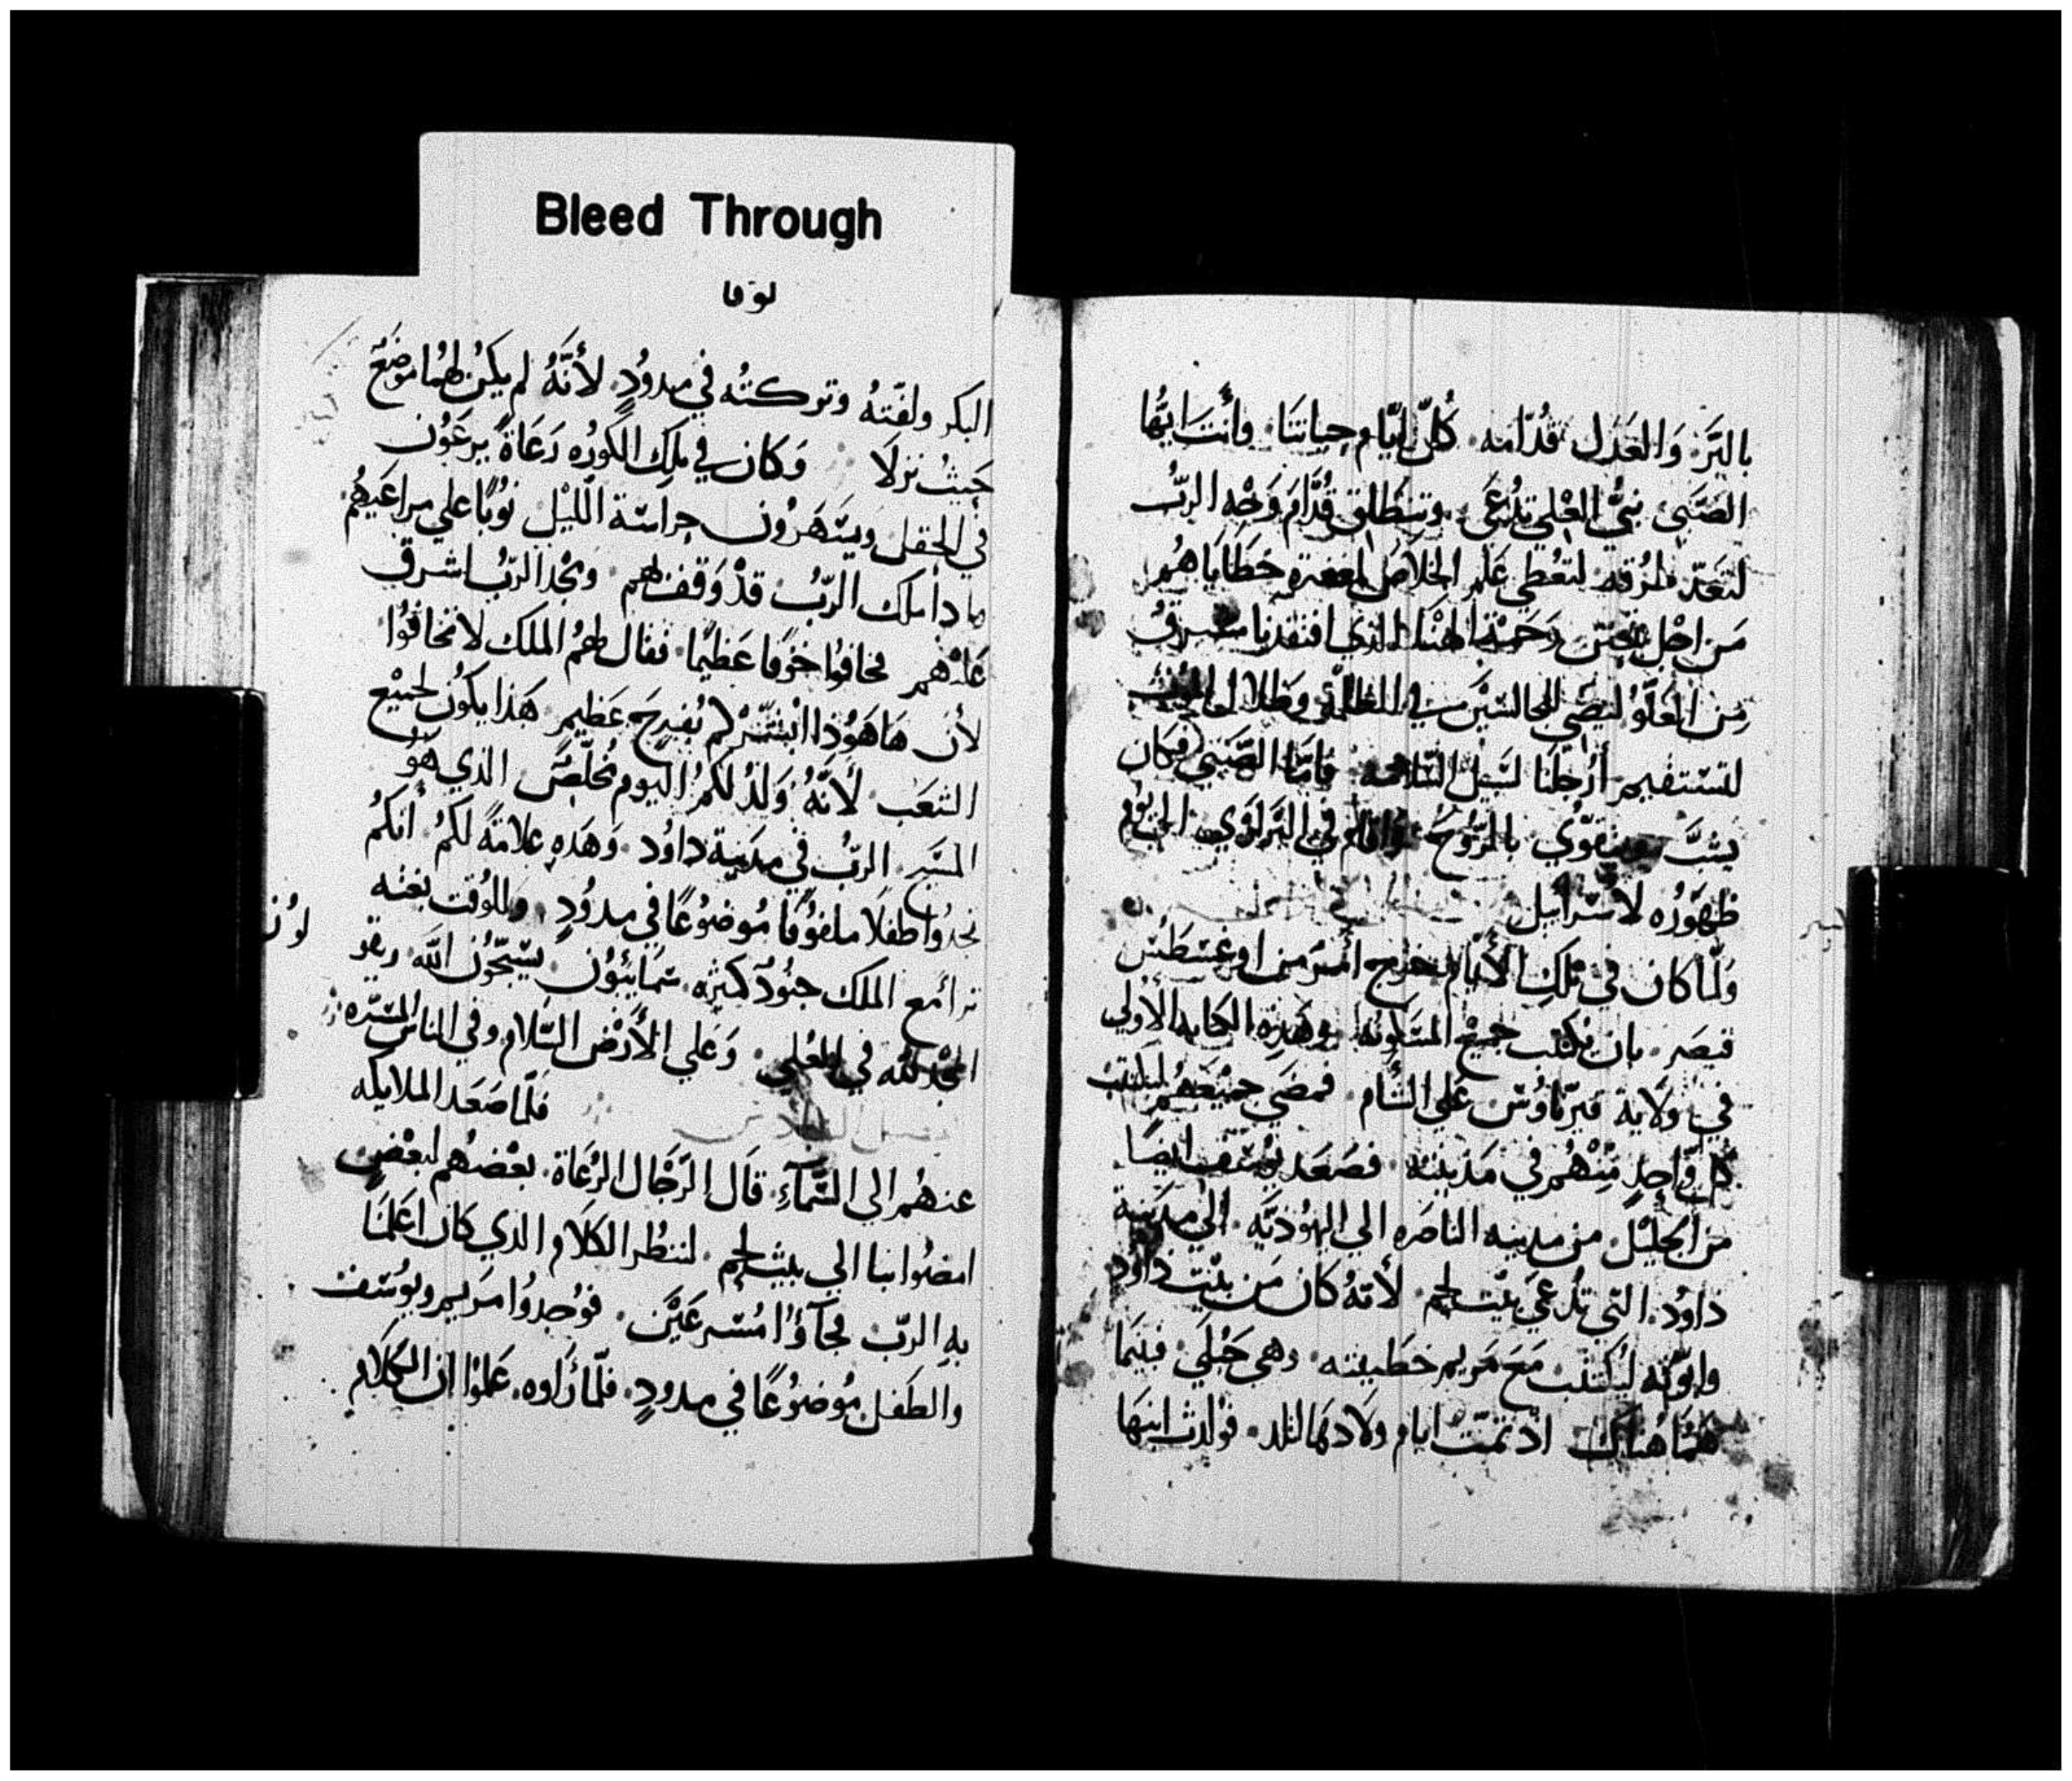 Bleed Through
لوقا
بالبَرّ وَالعَدَل قُدّامه كُلّ ايّام حياتنَا وأنتَ ايُّها
الصَّبي نبيُّ العْلي تدُعَى وتنطَلق قُدَّام وَجْه الربُّ
لتعَدّ طرُقه لتعُطي عَلم الخلاصَ لمغفرة خطَاياهُم
مَن اجْل تحنّن رَحمَة الهَنَا الذي افتقدنا مشرقُ
مِن العَلَّوُ ليضَي الجالسَيْن في الظلمَة وظلال الموُت
لتستقيم أرْجلنَا لسَبيْل السَّلامه فامَّا الصَّبي فكان
يشبَّ ويتقوّي بالرُّوحَ واقام في البَراوَي الي يوُم
ظهوُره لاسْرَاييل
وَلَمّا كان في تلكِ الأَيّام خرَج أمْر من اوغسَطسْ
قيصَر بان يُكتب جميْع المسَكوُنه وهَذِه الكتابه الأولي
في ولَاية قيرّياوُسَ عَلي الشَّام فمضَي جميْعهُم ليكتتب
كل وَّاحدٍ مِنْهُم في مَديْنته فصَعَد يوُسَف ايضًا
من الجَليْل من مدينه الناصَره الي اليهوُديَّه الي مديَنة
داوُد التي تدُعَي بيْت لحم لأنهُ كان من بيْت داوُد
وابوّته ليُكتتب مَع مَريم خطَيبته وهي حَبْلَي فبينَما
همُا هنَاك اذ تمّت ايام ولادَتها لتلد فولدت ابنهَا
البكر ولفّتهُ وتركتهُ في مدودٍ لأنّهُ لم يكنُ لهمُا موَضعٌ
حَيثُ نزلَا وَكان في تلكِ الكوُره رَعَاةً يرعَوُن
في الحقل ويسَهَروُن حراسَة الليْل نوُبًا علي مراعَيهُم
وادا ملك الربُّ قدْ وَقف بهم وَمجْد الربُّ اشرق
عَليْهم فخافوُا خوْفا عَظيْمًا فقال لهُم الملك لا تخافوُا
لأن هَاهَوُذا ابُشّركم بُفرحَ عَظيم هَذا يكوُن لجميْع
الشعَب لأنّهُ وَلدُ لكُم اليوم مُخلّصٌ الذي هوُ
المسَيح الربُّ في مديَنة داوُد وَهَذهِ علامَةً لكمُ أنكمُ
تجدُوا طفلًا ملفوُفًا مُوضوُعًا في مدوُدٍ وللوُقت بغته
ترائ مع الملك جنوُدٌ كثيْره سَمَايئوُن يسَبّحُوُن اللّه ويقو
المجْد للّه في العْلي وَعَلي الأَرْض السَّلام وفي الناس المسَرّه
فلّما صَعَد الملايكه
عنهُم الي السَّمآءِ قال الرّجَال الرُعَاة بعْضهُم لبعْضٍ
امضوُا بنا الي بيْت لحم لننظُر الكلَام الذي كان اعَلمنَا
بهِ الربّ فجآؤُا مُسَرعَيْن فوُجدوُا مَريم ويوُسَف
والطَفل مُوضوُعًا في مدودٍ فلّما رَأوه عَلموُا ان الكلام